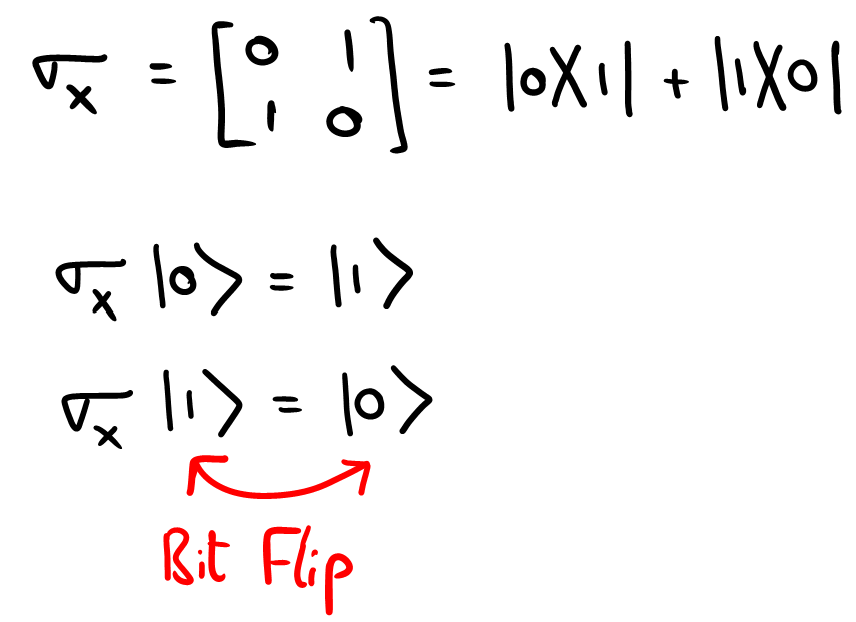 σx = [0 1 1 0] = |0⟩⟨1| + |1⟩⟨0|
σx |0⟩ = |1⟩
σx |1⟩ = |0⟩
Bit Flip